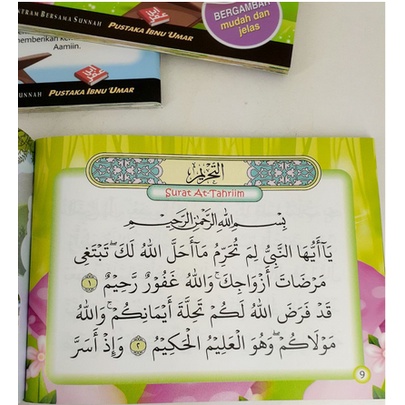 NTRAM BERSAMA SUNNAH PUSTAKA IBNU 'UMAR
BERGAMBAR
mudah dan
jelas
memberikan ke
Aamiin.
SUNNAH PUSTAKA IBNU 'UMAR
التحريم
Surat At-Tahriim
بِسْمِ اللهِ الرَّحْمٰنِ الرَّحِيْمِ
يَآأَيُّهَا النَّبِيُّ لِمَ تُحَرِّمُ مَآأَحَلَّ اللهُ لَكَ ۖ تَبْتَغِى
مَرْضَاتَ أَزْوَاجِكَ ۚ وَاللهُ غَفُوْرٌ رَّحِيْمٌ ١
قَدْ فَرَضَ اللهُ لَكُمْ تَحِلَّةَ أَيْمَانِكُمْ ۚ وَاللهُ
مَوْلَاكُمْ ۖ وَهُوَ الْعَلِيْمُ الْحَكِيْمُ ٢ وَإِذْ أَسَرَّ
9